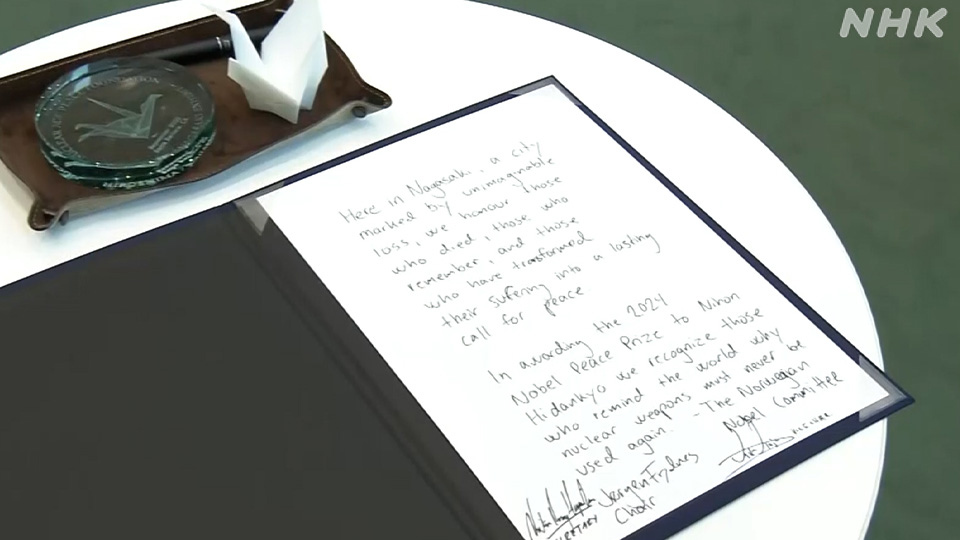 NHK
Here in Nagasaki, a city
marked by unimaginable
loss, we honour those
who died, those who
remember, and those
who have transformed
their suffering into a lasting
call for peace
In awarding the 2024
Nobel Peace Prize to Nihon
Hidankyo we recognize those
who remind the world why
nuclear weapons must never be
used again. - The Norwegian
Nobel Committee
Jørgen
Chair